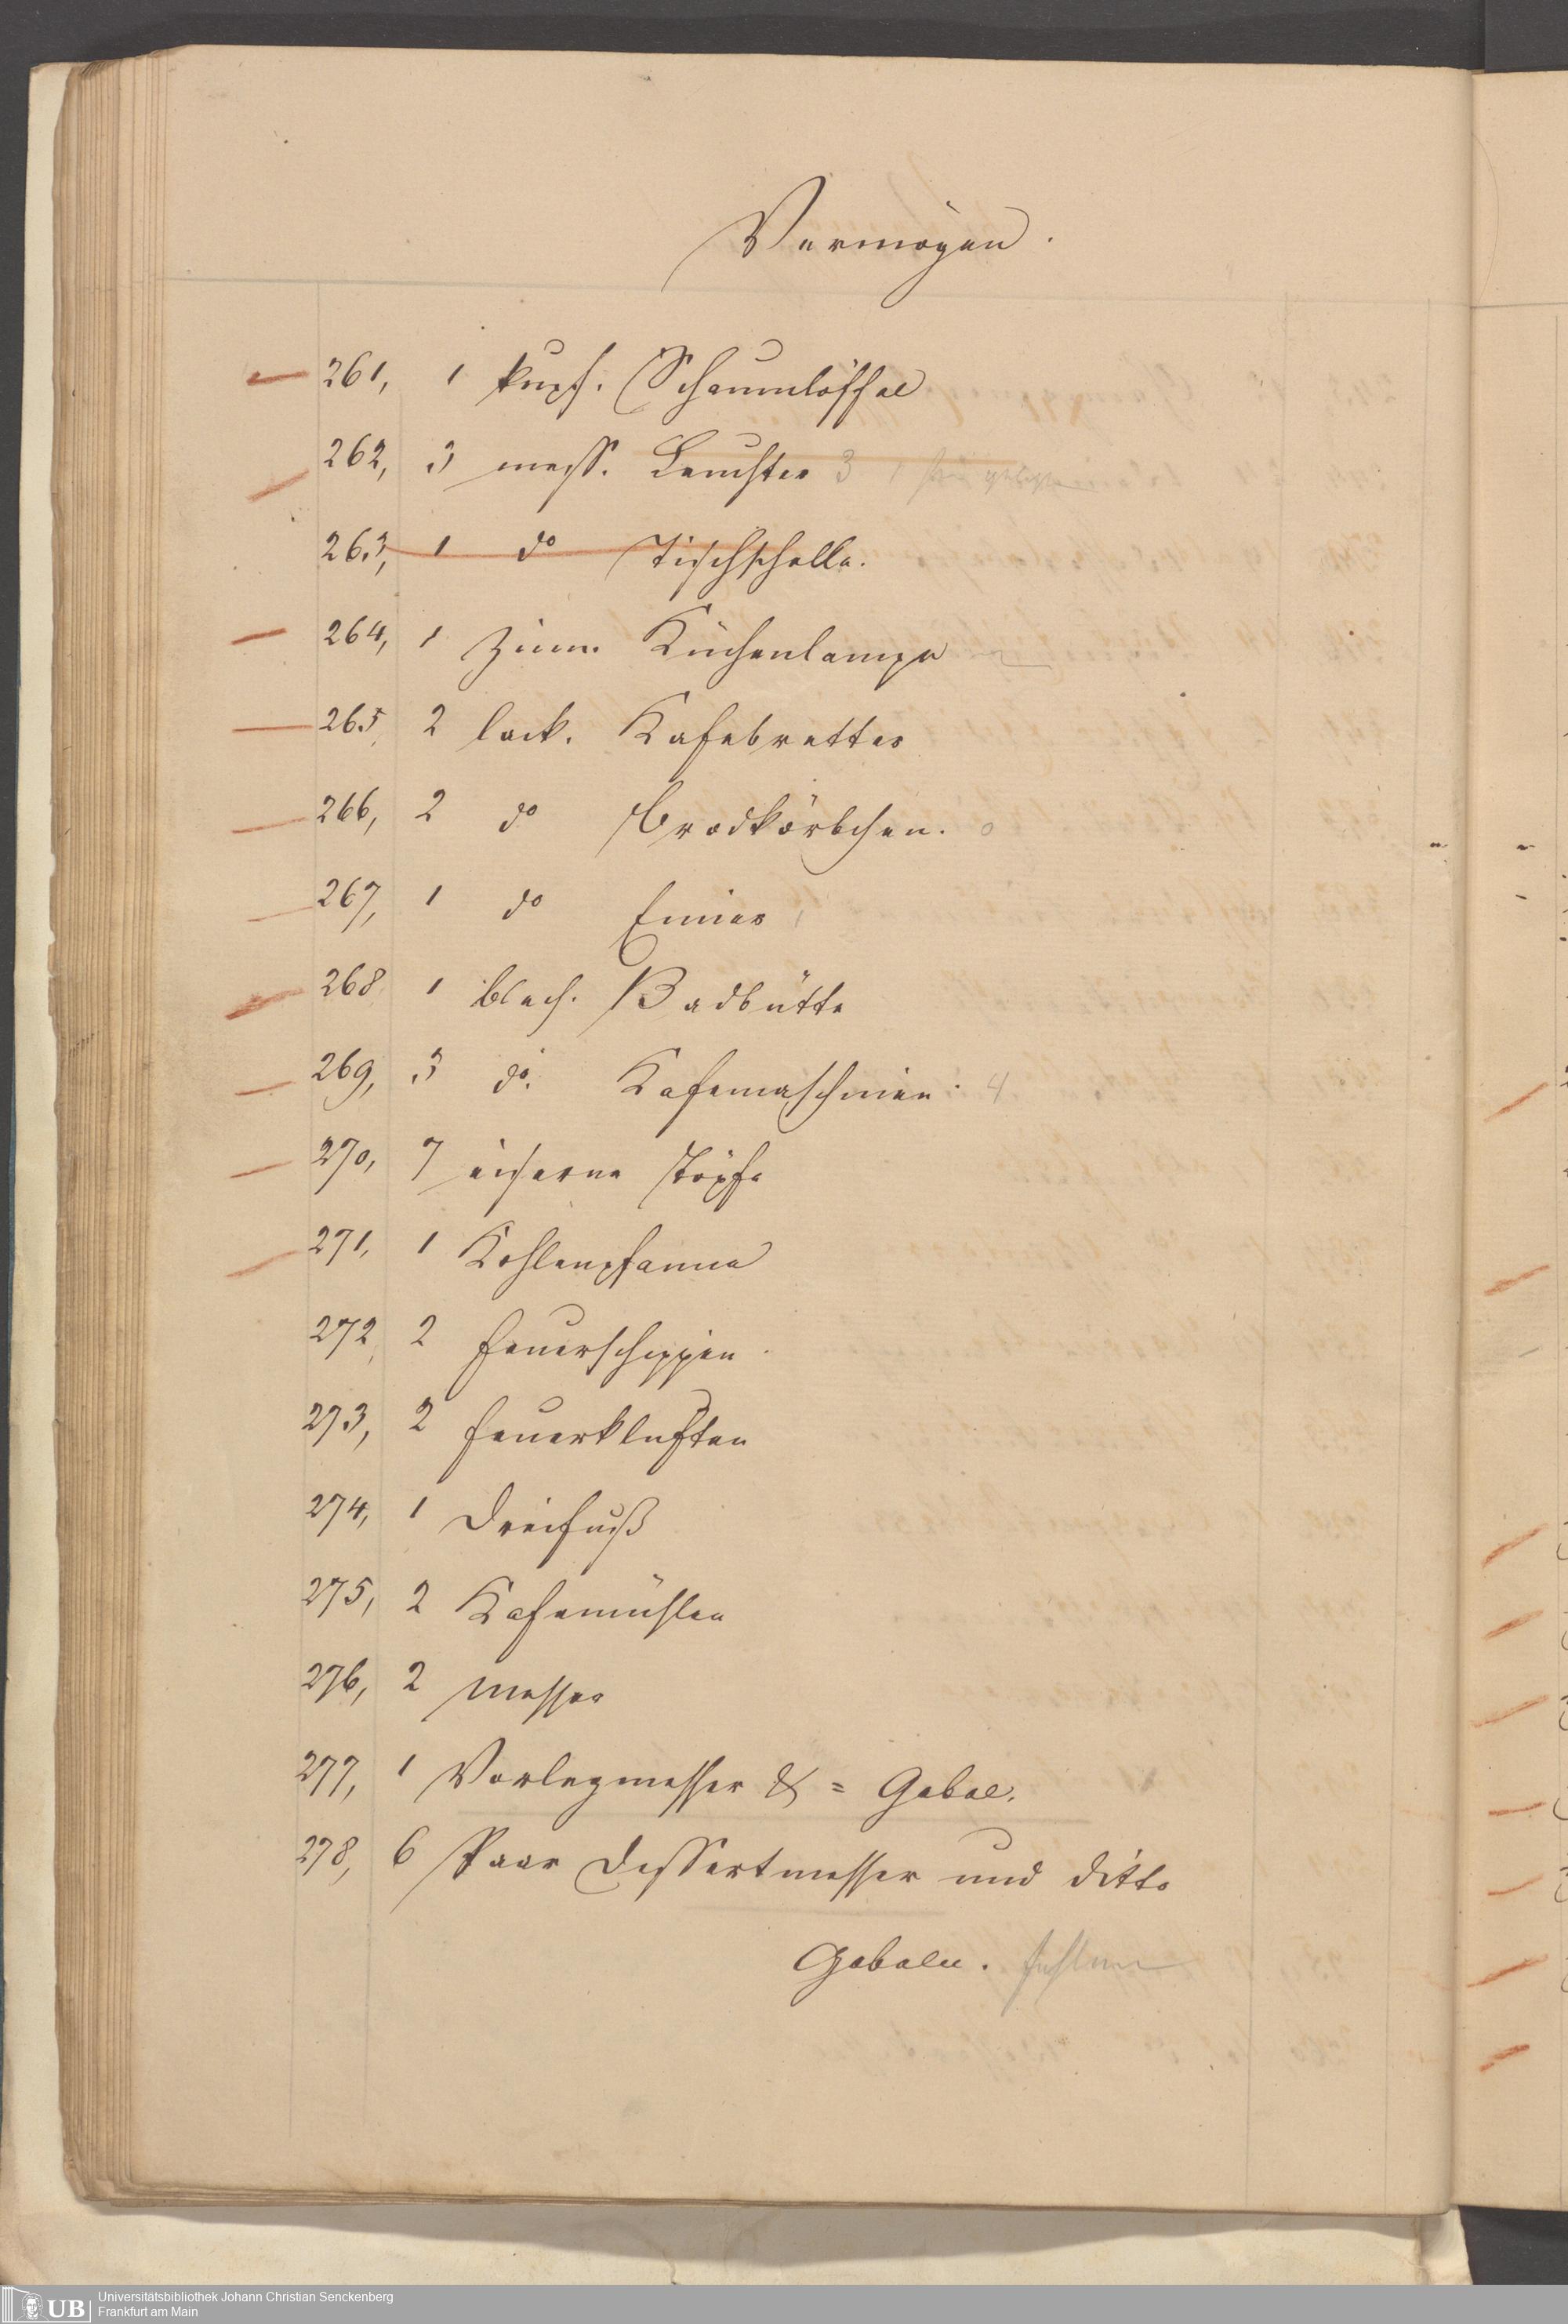 Vermögen.
261, 1 kupf. Schaumlöffel
262, 3 mess. Leuchter 3 1
263, 1 do Tischschelle.
264, 1 zinn. Küchenlampe
265, 2 lack. Kafebretter
266, 2 do Brodkörbchen. 0
267, 1 do Eimer 1
268, 1 blech. Badbütte
269, 3 do. Kafemaschinen. 4
270, 7 eiserne Töpfe
271, 1 Kohlenpfanne
272, 2 Feuerschippen
273, 2 Feuerkluften
274, 1 Dreifuß
275, 2 Kafemühlen
276, 2 Messer
277, 1 Vorlegmesser & = Gabel.
278, 6 Paar Dessertmesser und ditto
Gabeln. fehlen
UB Universitätsbibliothek Johann Christian Senckenberg
Frankfurt am Main